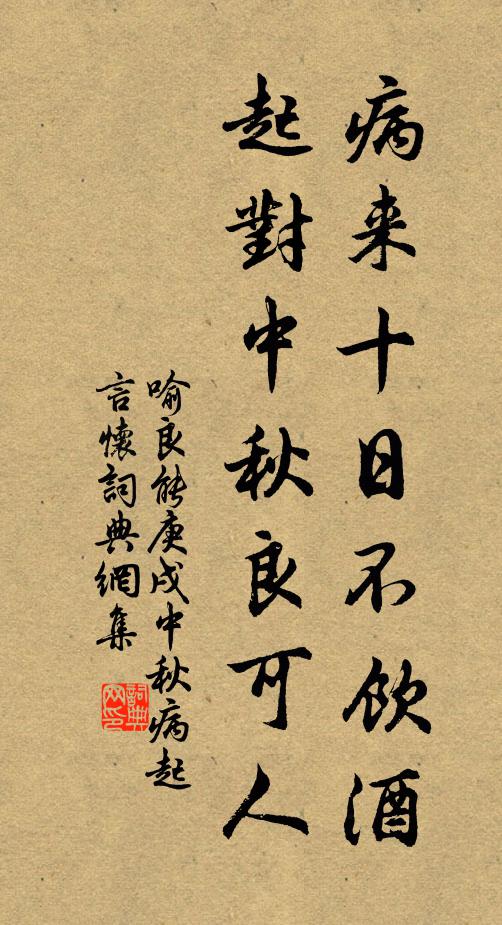 病来十日不饮酒
起對中秋良可人
喻良能庚戌中秋病起
言懷詞典網集
詞典网印